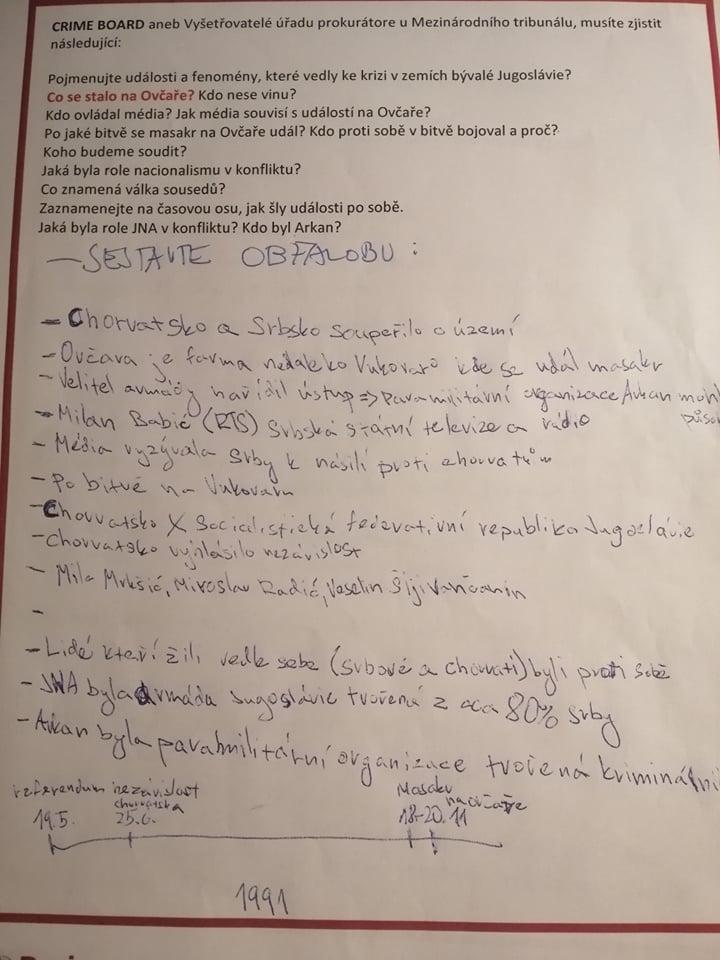 CRIME BOARD aneb Vyšetřovatelé úřadu prokurátore u Mezinárodního tribunálu, musíte zjistit
následující:
Pojmenujte události a fenomény, které vedly ke krizi v zemích bývalé Jugoslávie?
Co se stalo na Ovčaře? Kdo nese vinu?
Kdo ovládal média? Jak média souvisí s událostí na Ovčaře?
Po jaké bitvě se masakr na Ovčaře udál? Kdo proti sobě v bitvě bojoval a proč?
Koho budeme soudit?
Jaká byla role nacionalismu v konfliktu?
Co znamená válka sousedů?
Zaznamenejte na časovou osu, jak šly události po sobě.
Jaká byla role JNA v konfliktu? Kdo byl Arkan?
— SESTAVTE OBŽALOBU :
- Chorvatsko a Srbsko soupeřilo o území
- Ovčara je farma nedaleko Vukovaro kde se udál masakr
- Velitel armády nařídil ústup => paramilitární organizace Arkan mohl
působ
- Milan Babić (RTS) Srbská státní televize a rádio
- Média vyzývala Srby k násilí proti chorvatům
- Po bitvě na Vukovaru
- Chorvatsko X Socialistická federativní republika Jugoslávie
- Chorvatsko vyhlásilo nezávislost
- Mile Mrkšić, Miroslav Radić, Veselin Šljivančanin
-
- Lidé kteří žili vedle sebe (srbové a chorvati) byli proti sobě
- JNA byla armáda Jugoslávie tvořená z cca 80% srby
- Arkan byla paramilitární organizace tvořená kriminální
referendum nezávislost Masakr
chorvatska na ovčaře
19.5. 25.6. 18-20.11
1991